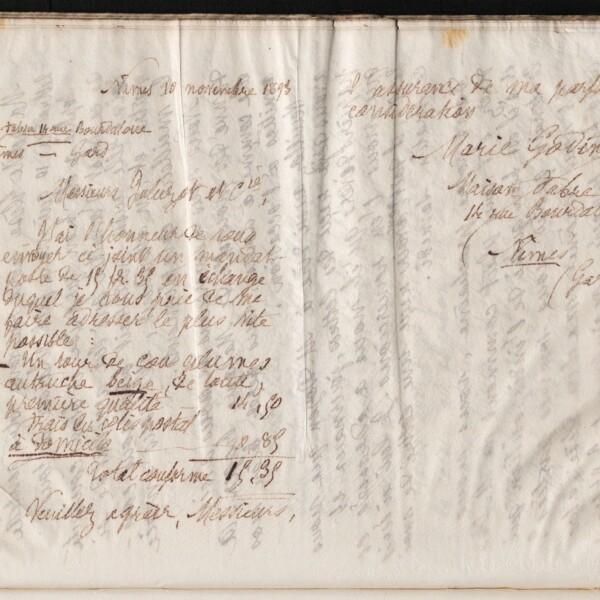 Nîmes 10 novembre 1893
Fabre 14 rue Bourdaloue
Nîmes — Gard
Messieurs Jaluzot et Cie,
J'ai l'honneur de vous
envoyer ci joint un mandat-
poste de 15 fr. 35 en échange
duquel je vous prie de me
faire adresser le plus vite
possible :
Un tour de cou plumes
autruche beige, (de toute)
première qualité — 14,50
Frais en colis postal
à domicile — 0,85
Total conforme 15,35
Veuillez agréer, Messieurs,
l'assurance de ma parf
considération
Marie Godin
Maison Fabre
14 rue Bourdal
(Nîmes
(Ga